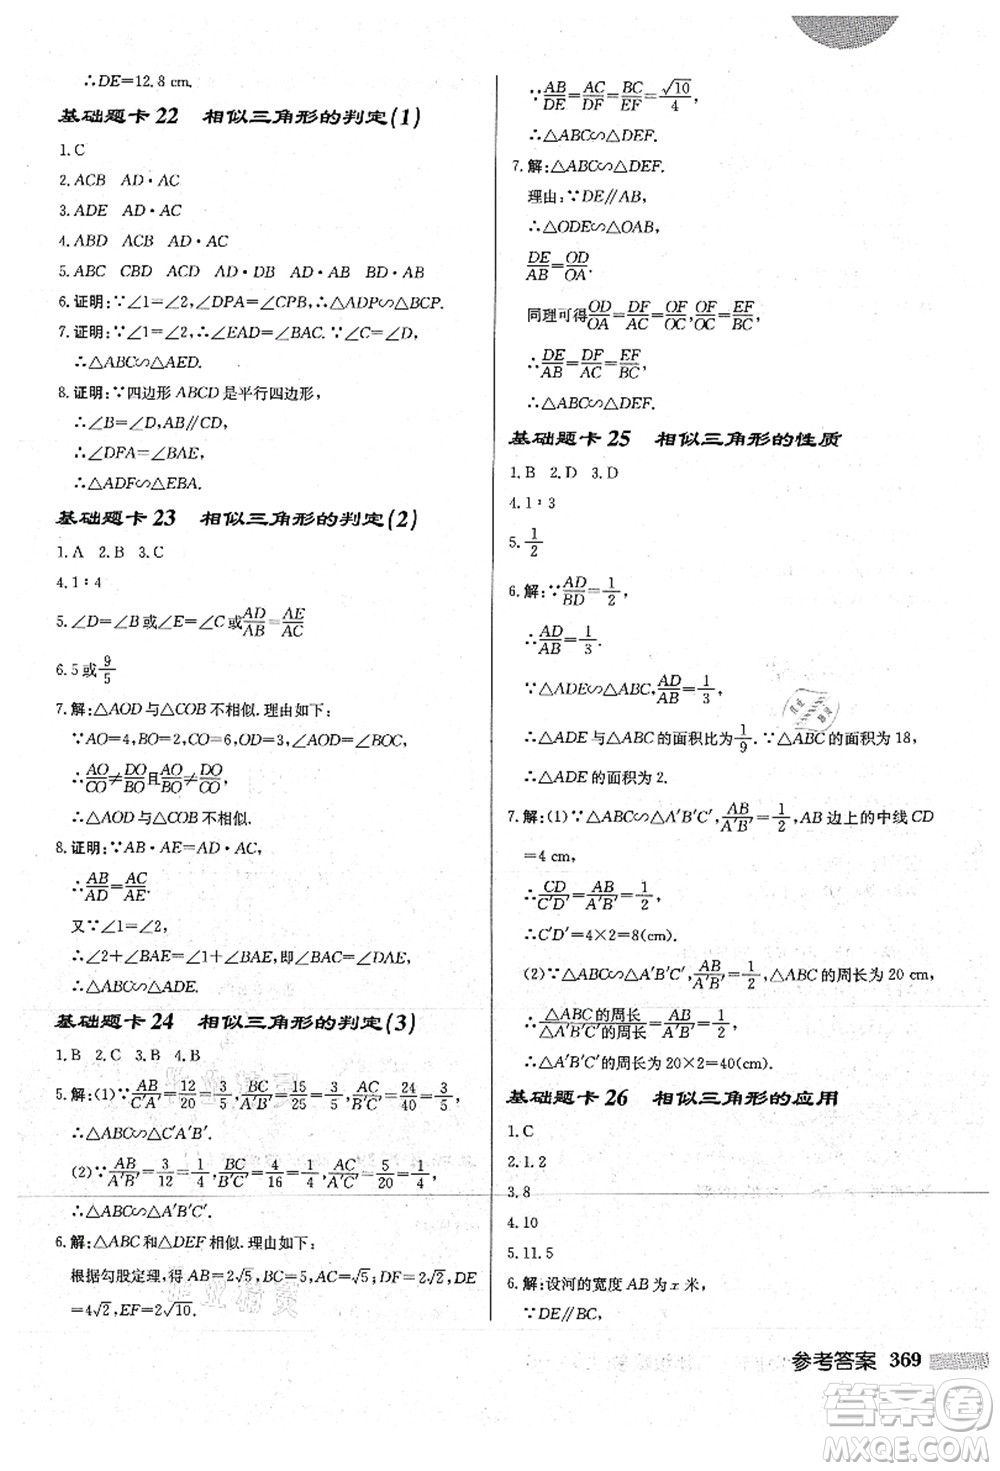 ∴DE=12.8 cm.
基础题卡 22 相似三角形的判定(1)
1.C
2.ACB AD·AC
3.ADE AD·AC
4.ABD ACB AD·AC
5.ABC CBD ACD AD·DB AD·AB AC
6.证明:∵∠1=∠2,∠DPA=∠CPB,∴△ADP∽△BCP.
7.证明:∵∠1=∠2,∴∠EAD=∠BAC. 又∵∠C=∠D,
∴△ABC∽△AED.
8.证明:∵四边形 ABCD 是平行四边形,
∴∠B=∠D,AB∥CD,
∴∠DFA=∠BAE,
∴△ADF∽△EBA.
基础题卡 23 相似三角形的判定(2)
1.A 2.B 3.C
4.1∶4
5.∠D=∠B或∠E=∠C或AD/AB=AE/AC
6.5或9/5
7.解:△AOD与△COB不相似.理由如下:
∵AO=4,BO=2,CO=6,OD=3,∠AOD=∠BOC,
∴AO/CO≠DO/BO且AO/BO≠DO/CO,
∴△AOD与△COB不相似.
8.证明:∵AB·AE=AD·AC,
∴AB/AD=AC/AE.
又∵∠1=∠2,
∴∠2+∠BAE=∠1+∠BAE,即∠BAC=∠DAE,
∴△ABC∽△ADE.
基础题卡 24 相似三角形的判定(3)
1.B 2.C 3.B 4.B
5.解:(1)∵AB/C'A'=12/20=3/5,BC/A'B'=15/25=3/5,AC/C'B'=24/40=3/5,
∴△ABC∽△C'A'B'.
(2)∵AB/A'B'=3/12=1/4,BC/B'C'=4/16=1/4,AC/A'C'=5/20=1/4,
∴△ABC∽△A'B'C'.
6.解:△ABC和△DEF相似.理由如下:
根据勾股定理,得 AB=2√5,BC=5,AC=√5;DF=2√2,DE
=4√2,EF=2√10.
∵AB/DE=AC/DF=BC/EF=√10/4,
∴△ABC∽△DEF.
7.解:△ABC∽△DEF.
理由:∵DE∥AB,
∴△ODE∽△OAB,
DE/AB=OD/OA.
同理可得OD/OA=DF/AC=OF/OC,OF/OC=EF/BC,
∴DE/AB=DF/AC=EF/BC,
∴△ABC∽△DEF.
基础题卡 25 相似三角形的性质
1.B 2.D 3.D
4.1∶3
5.1/2
6.解:∵AD/BD=1/2,
∴AD/AB=1/3.
∵△ADE∽△ABC,AD/AB=1/3,
∴△ADE与△ABC的面积比为1/9.∵△ABC的面积为18,
∴△ADE的面积为2.
7.解:(1)∵△ABC∽△A'B'C',AB/A'B'=1/2,AB边上的中线CD
=4 cm,
∴CD/C'D'=AB/A'B'=1/2,
∴C'D'=4×2=8(cm).
(2)∵△ABC∽△A'B'C',AB/A'B'=1/2,△ABC的周长为20 cm,
∴△ABC的周长/△A'B'C'的周长=1/2,
∴△A'B'C'的周长为20×2=40(cm).
基础题卡 26 相似三角形的应用
1.C
2.1.2
3.8
4.10
5.11.5
6.解:设河的宽度AB为x米,
∵DE∥BC,
参考答案 369
答案圈
MXQE.COM